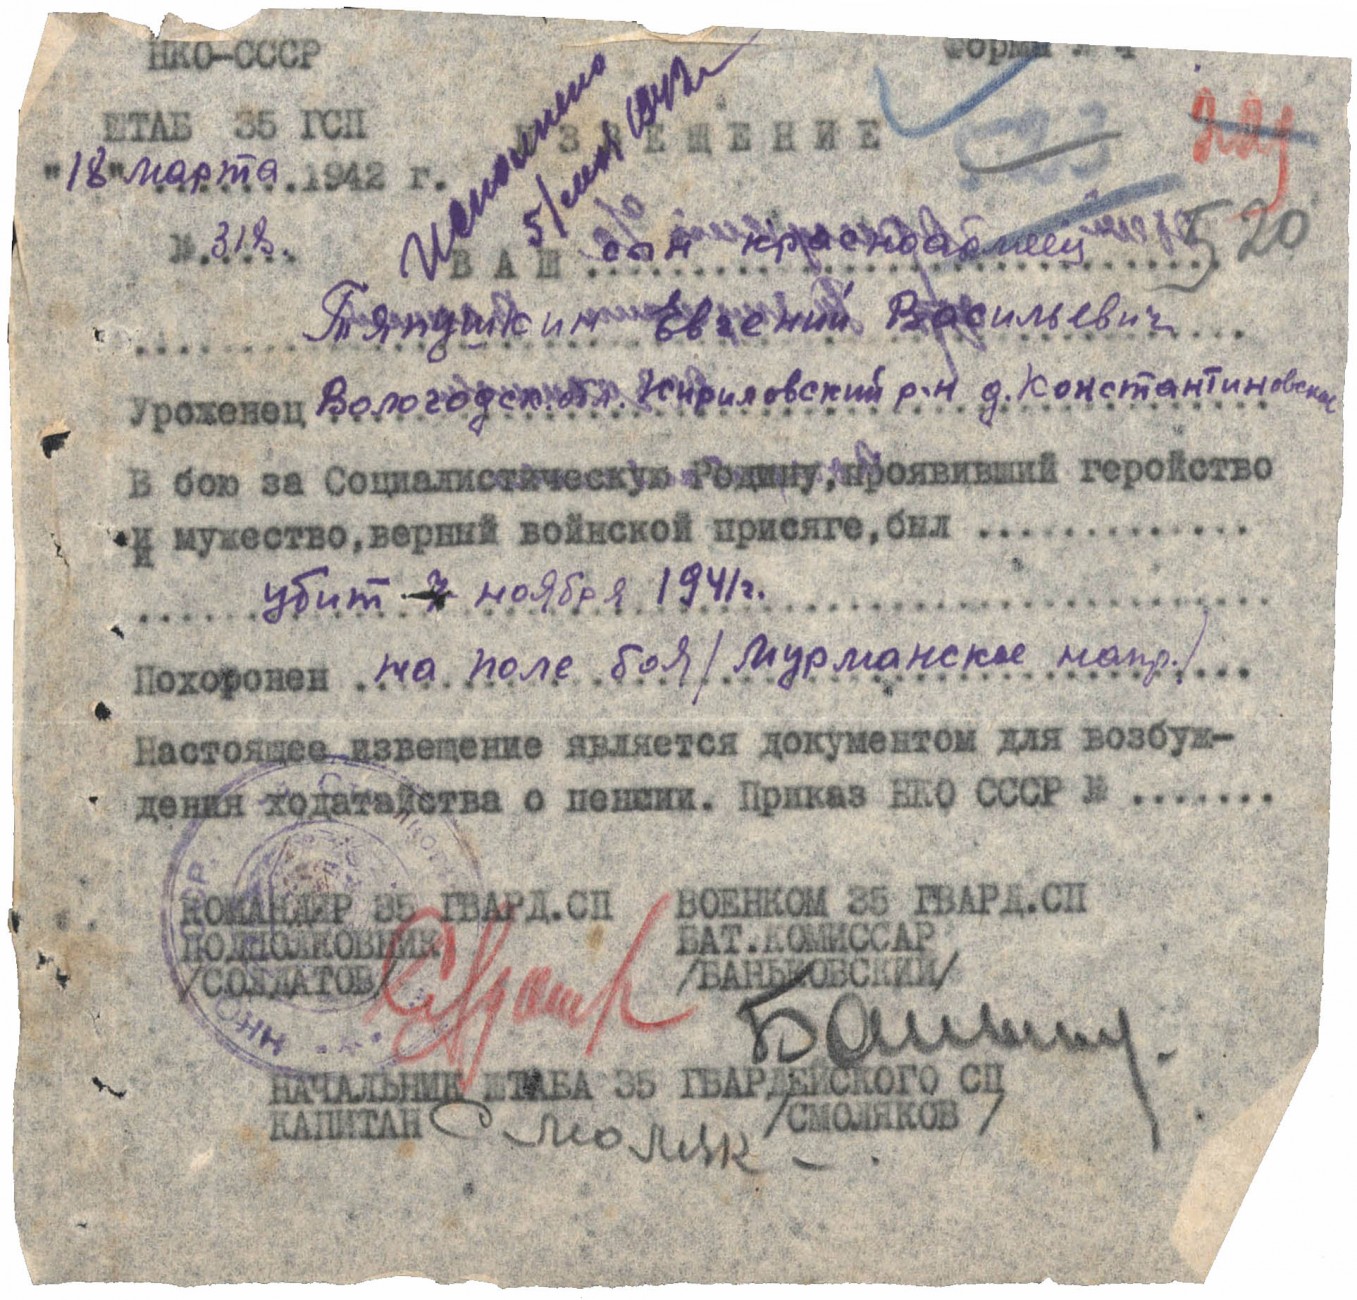 НКО-СССР Форма № 4
ШТАБ 35 ГСП
ИЗВЕЩЕНИЕ
523
"18" марта 1942 г.
Исполнено
5/ 1942 г
№ 318.
520
ВАШ сын красноармеец
Тяпушкин Евгений Васильевич
Уроженец Вологодск. обл. Кириловский р-н д. Константиновское
В бою за Социалистическую Родину, проявивший геройство
и мужество, верный войнской присяге, был ..............
убит 7 ноября 1941 г.
Похоронен на поле боя /Мурманское напр./
Настоящее извещение является документом для возбуж-
дения ходатайства о пенсии. Приказ НКО СССР № .......
КОМАНДИР 35 ГВАРД.СП ВОЕНКОМ 35 ГВАРД.СП
ПОДПОЛКОВНИК БАТ.КОМИССАР
/СОЛДАТОВ/ /БАНЬКОВСКИЙ/
НАЧАЛЬНИК ШТАБА 35 ГВАРДЕЙСКОГО СП
КАПИТАН Смоляк /СМОЛЯКОВ/
НКО